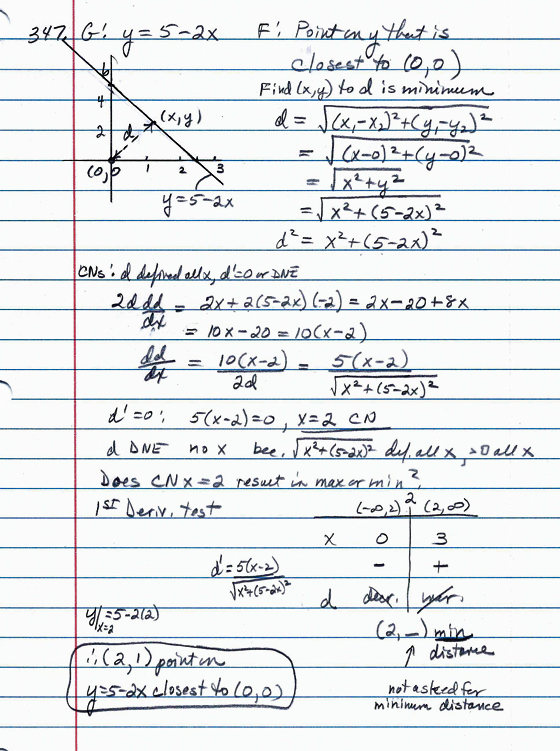 347. G: y = 5-2x F: Point on y that is
closest to (0,0)
Find (x,y) to d is minimum
6
4
2
(x,y)
d
(0,0) 0 1 2 3
y=5-2x
d = √(x₁-x₂)²+(y₁-y₂)²
= √(x-0)²+(y-0)²
= √x²+y²
= √x²+(5-2x)²
d² = x²+(5-2x)²
CNs: d defined all x, d'=0 or DNE
2d dd/dx = 2x+2(5-2x)(-2) = 2x-20+8x
= 10x-20 = 10(x-2)
dd/dx = 10(x-2)/2d = 5(x-2)/√x²+(5-2x)²
d'=0: 5(x-2)=0, x=2 CN
d DNE no x bec. √x²+(5-2x)² def. all x, >0 all x
Does CN x=2 result in max or min?
1ST Deriv. test
(-∞,2) 2 (2,∞)
x 0 3
d'= 5(x-2)/√x²+(5-2x)² - +
d decr. incr.
y|x=2 = 5-2(2)
(2, _) min
distance
∴ (2,1) point on
y=5-2x closest to (0,0)
not asked for
minimum distance